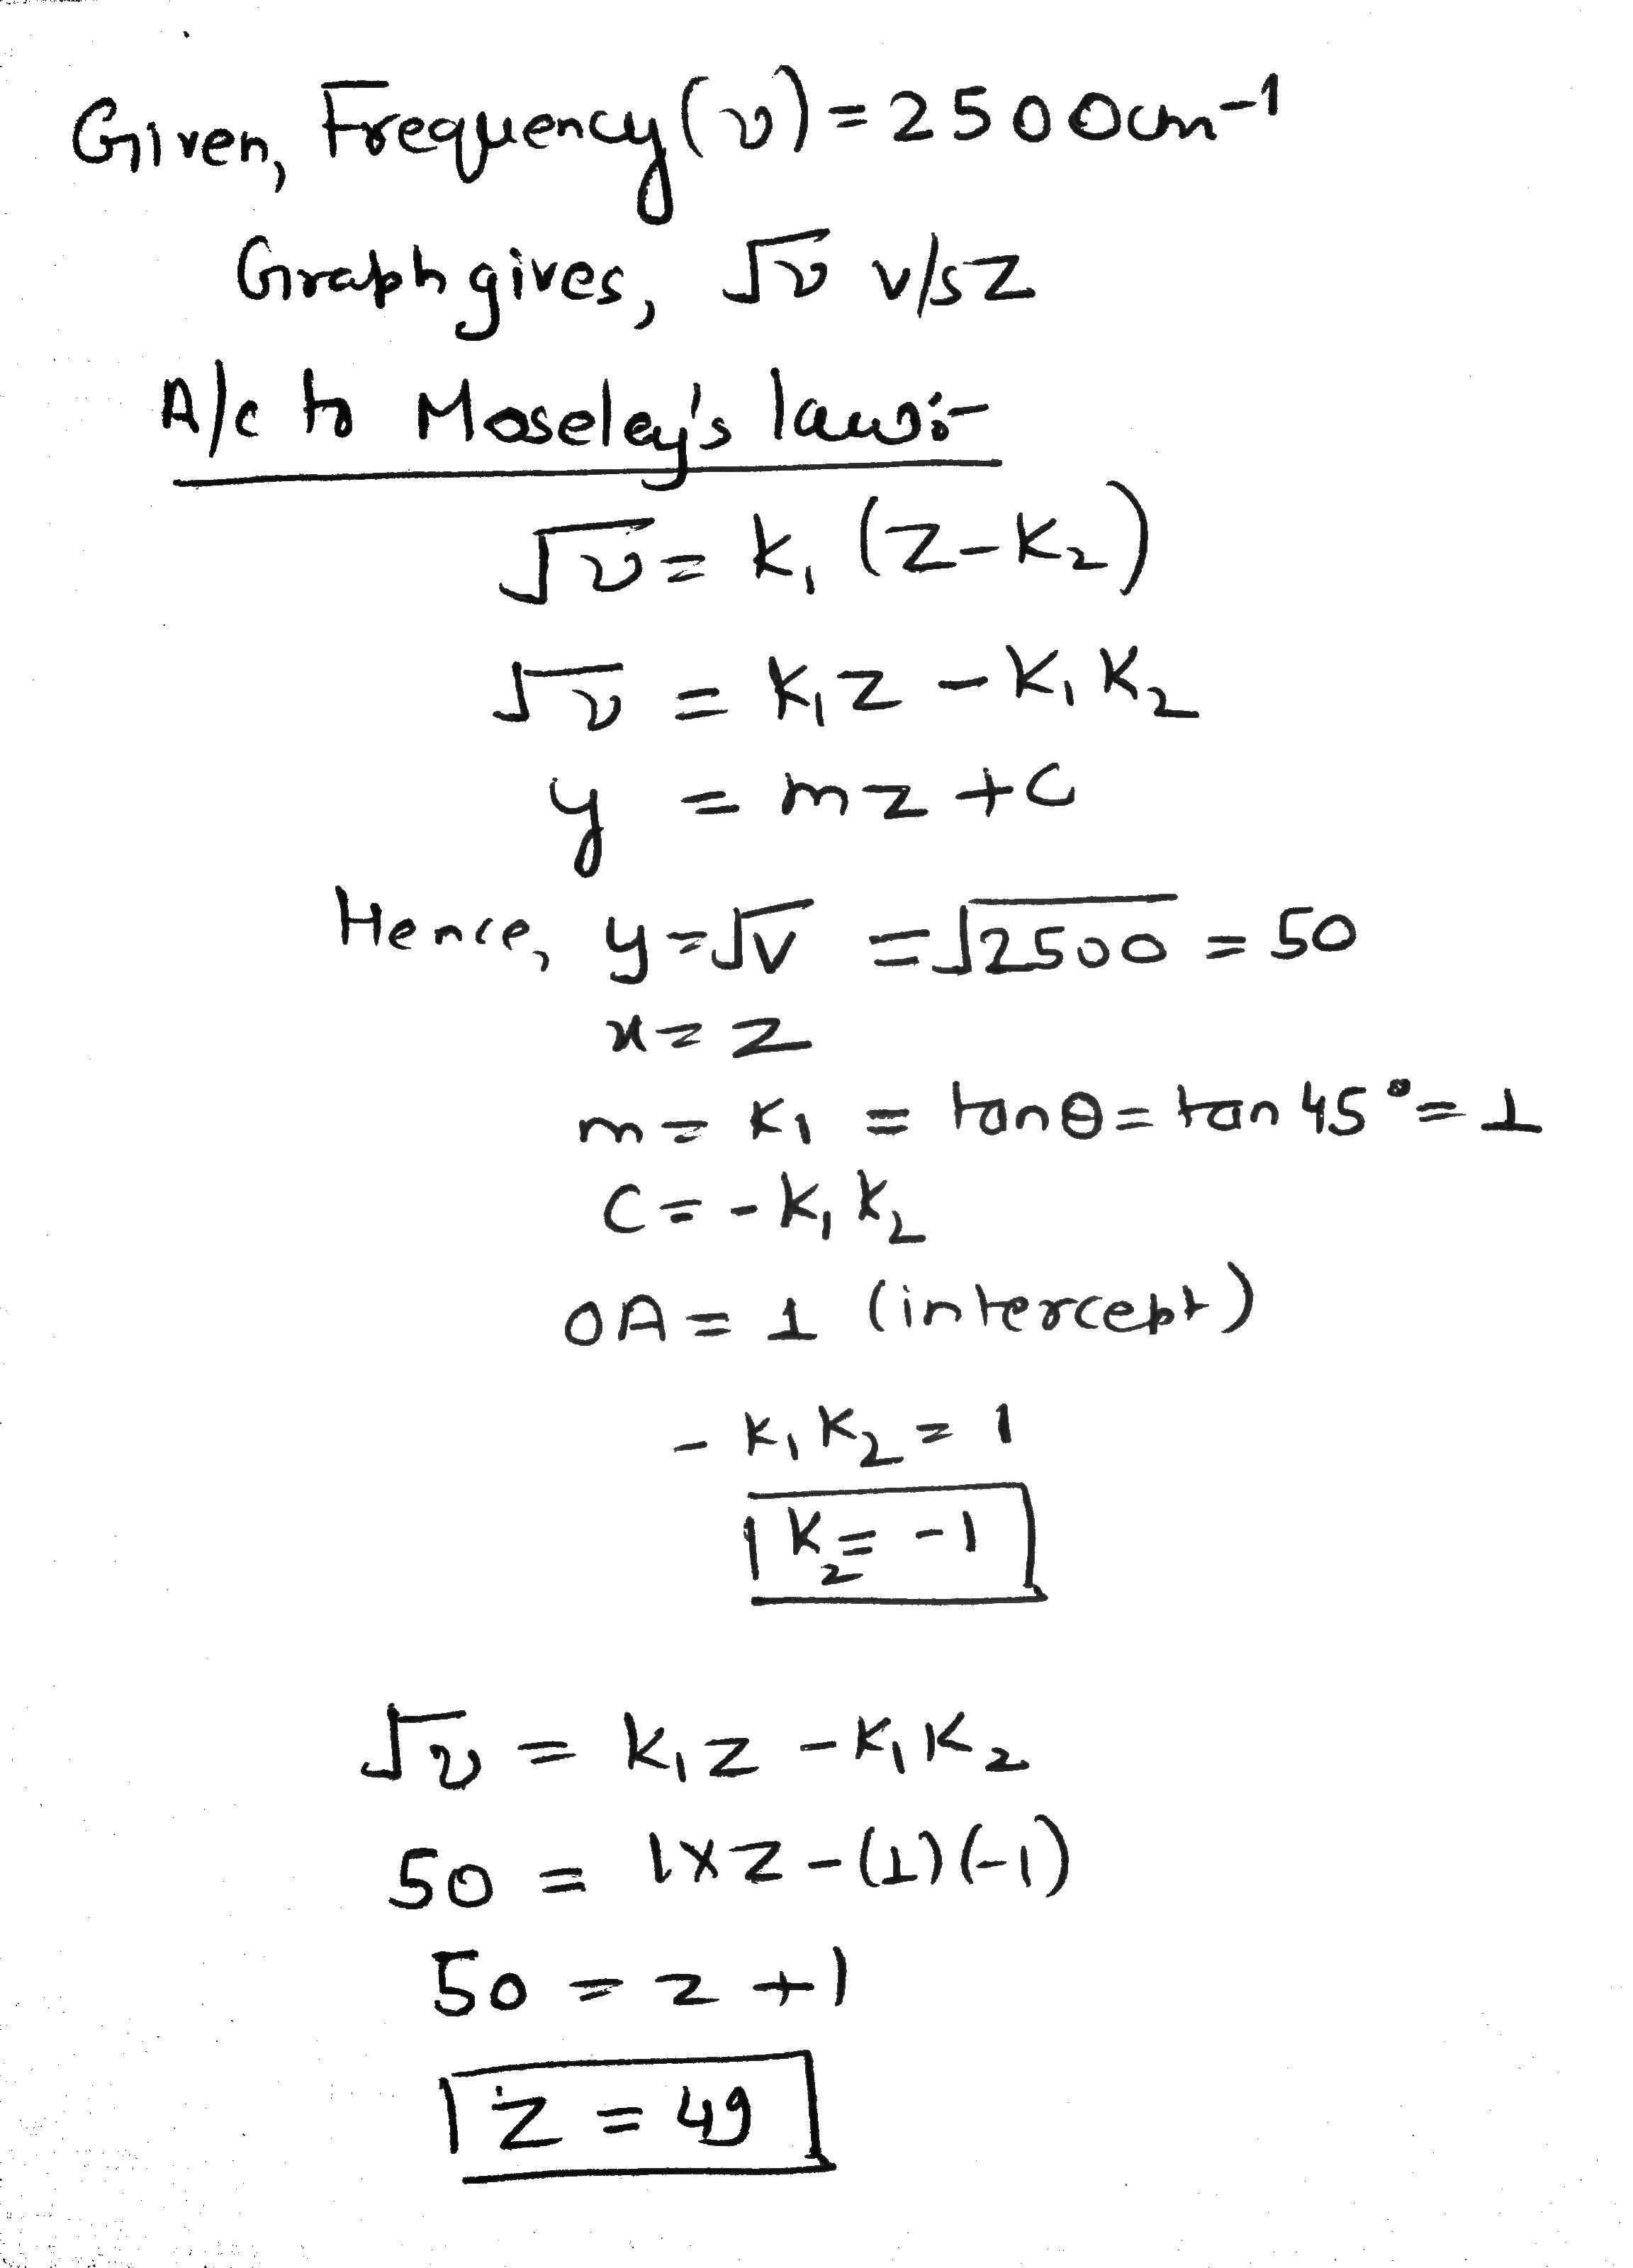 Given, Frequency (ν) = 2500cm⁻¹
Graph gives, √ν v/s Z
A/c to Moseley's law:-
√ν = K₁ (Z-K₂)
√ν = K₁Z - K₁K₂
y = mz + C
Hence, y = √v = √2500 = 50
x = Z
m = K₁ = tanθ = tan 45° = 1
C = - K₁K₂
OA = 1 (intercept)
- K₁K₂ = 1
K₂ = -1
√ν = K₁Z - K₁K₂
50 = 1×Z - (1)(-1)
50 = Z + 1
Z = 49